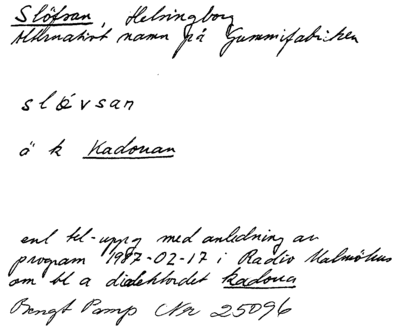 Slöfsan, Helsingborg
Alternativt namn på Gummifabriken
slövsan
ä k Kadouan
enl tel-uppg med anledning av
program 1987-02-17 i Radio Malmöhus
om bl a dialektordet kadoua
Bengt Pamp Nr 25096